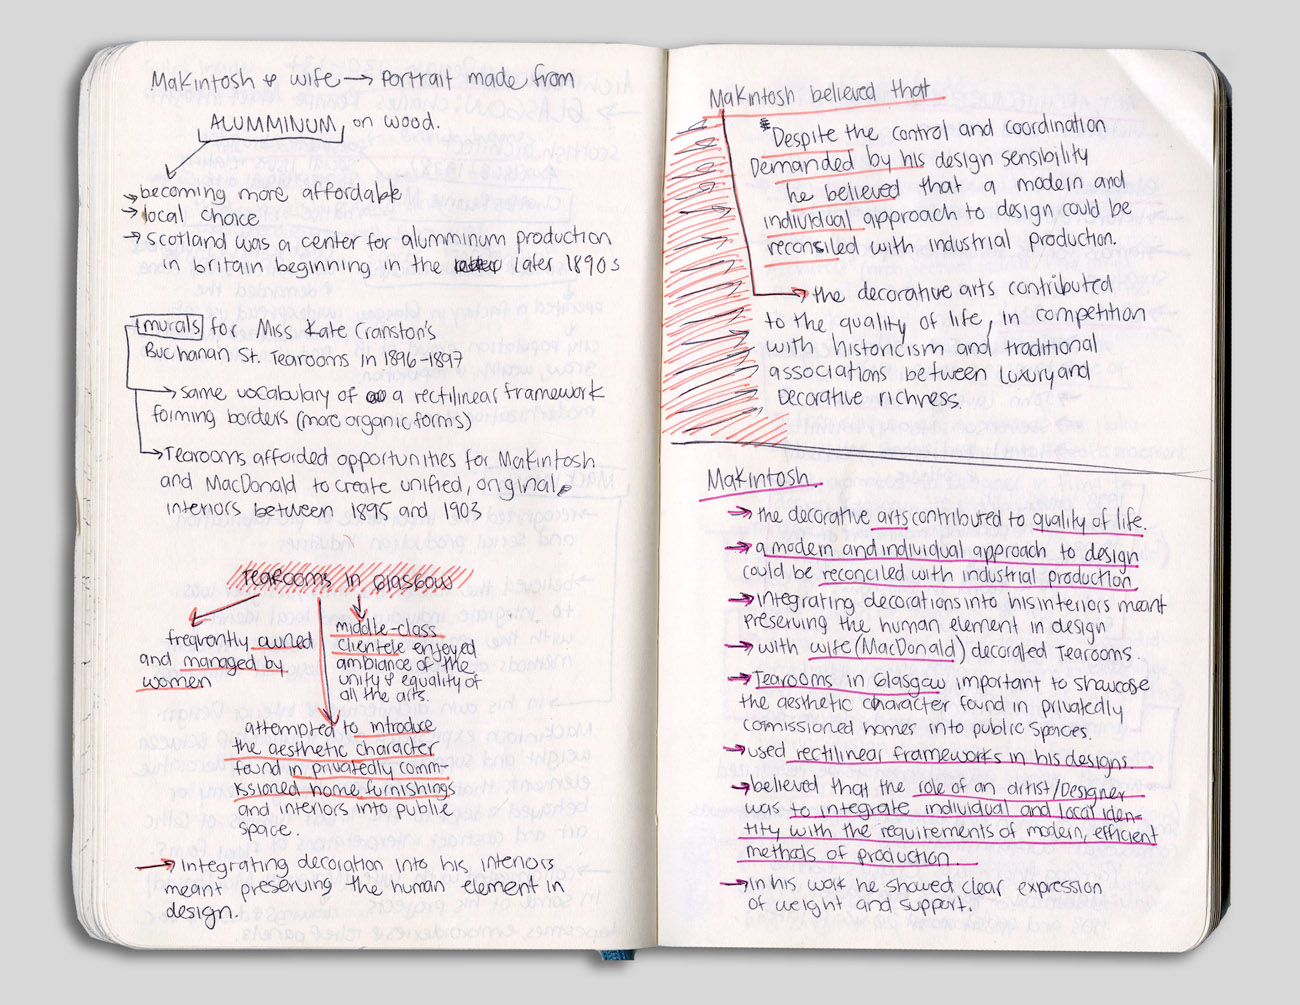 Makintosh & wife → Portrait made from
ALUMMINUM on wood.
→ becoming more affordable
→ local choice
→ Scotland was a center for alumminum production
in britain beginning in the later 1890s
murals for Miss. Kate Cranston's
Buchanan St. Tearooms in 1896-1897
→ same vocabulary of a rectilinear framework
forming borders (more organic forms)
→ Tearooms afforded opportunities for Makintosh
and MacDonald to create unified, original,
interiors between 1895 and 1903
TEAROOMS in Glasgow
frequently owned
and managed by
women
middle-class
clientele enjoyed
ambiance of the
unity & equality of
all the arts.
attempted to introduce
the aesthetic character
found in privatedly comm-
issioned home furnishings
and interiors into public
space.
→ Integrating decoration into his interiors
meant preserving the human element in
design.
Makintosh believed that
* Despite the control and coordination
Demanded by his design sensibility
he believed that a modern and
individual approach to design could be
reconsiled with industrial production.
→ the decorative arts contributed
to the quality of life, in competition
with historicism and traditional
associations between luxury and
Decorative richness.
Makintosh.
→ the decorative arts contributed to quality of life.
→ a modern and individual approach to design
could be reconciled with industrial production
→ integrating decorations into his interiors meant
preserving the human element in design
→ with wife (MacDonald) decorated Tearooms.
→ Tearooms in Glasgow important to showcase
the aesthetic character found in privatedly
comissioned homes into public spaces.
→ used rectilinear frameworks in his designs.
→ believed that the role of an artist/Designer
was to integrate individual and local iden-
tity with the requirements of modern, efficient
methods of production.
→ In his work he showed clear expression
of weight and support.